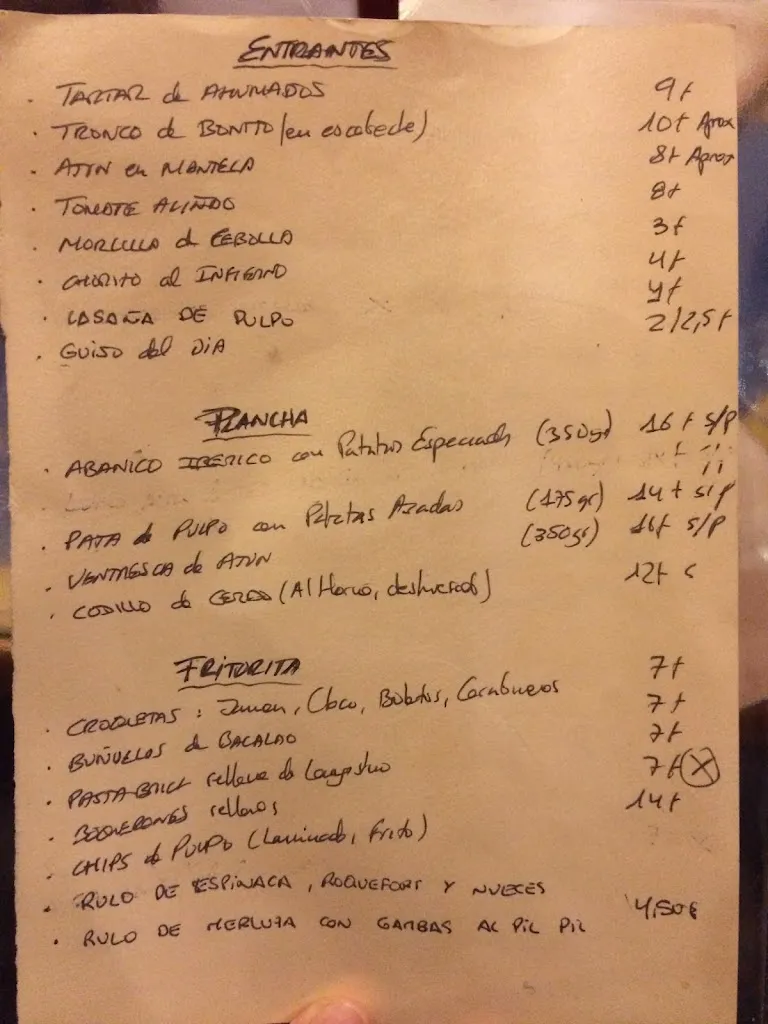 ENTRANTES
. TARTAR de AHUMADOS 9€
. TRONCO de BONITO (en escabeche) 10€ Aprox
. ATÚN en MANTECA 8€ Aprox
. TOMATE ALIÑADO 8€
. MORCILLA de CEBOLLA 3€
. CHORIZO al INFIERNO 4€
. LASAÑA DE PULPO 4€
. GUISO del DIA 2/2,5€
PLANCHA
. ABANICO IBERICO con Patatas Especiadas (350gr) 16€ S/P
. PATA de PULPO con Patatas Asadas (175gr) 14€ S/P
. VENTRESCA de ATÚN (350gr) 16€ S/P
. CODILLO de CERDO (Al Horno, deshuesado) 12€
FRITURITA
. CROQUETAS: Jamon, Choco, Boletus, Carabineros 7€
. BUÑUELOS de BACALAO 7€
. PASTA BRICK rellena de Langostino 7€
. BOQUERONES rellenos 7€ X
. CHIPS de PULPO (Laminado, frito) 14€
. RULO DE ESPINACA, ROQUEFORT Y NUECES
. RULO DE MERLUZA CON GAMBAS AL PIL PIL 4,50€